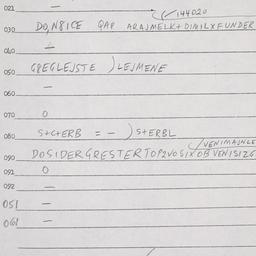 021 —
144020
030 DO,N8ICE QAP ARAJMELK+DIMILXFUNDER
040 —
050 GPEGLEJSTE )LEJMENE
060 —
070 O
080 S+C+ERB = — )S+ERBL
/VENIMALNLE
090 DOSIDERGRESTERTOP2VOSIXOBVENISIZG
091 O
092 —
051 —
061 —